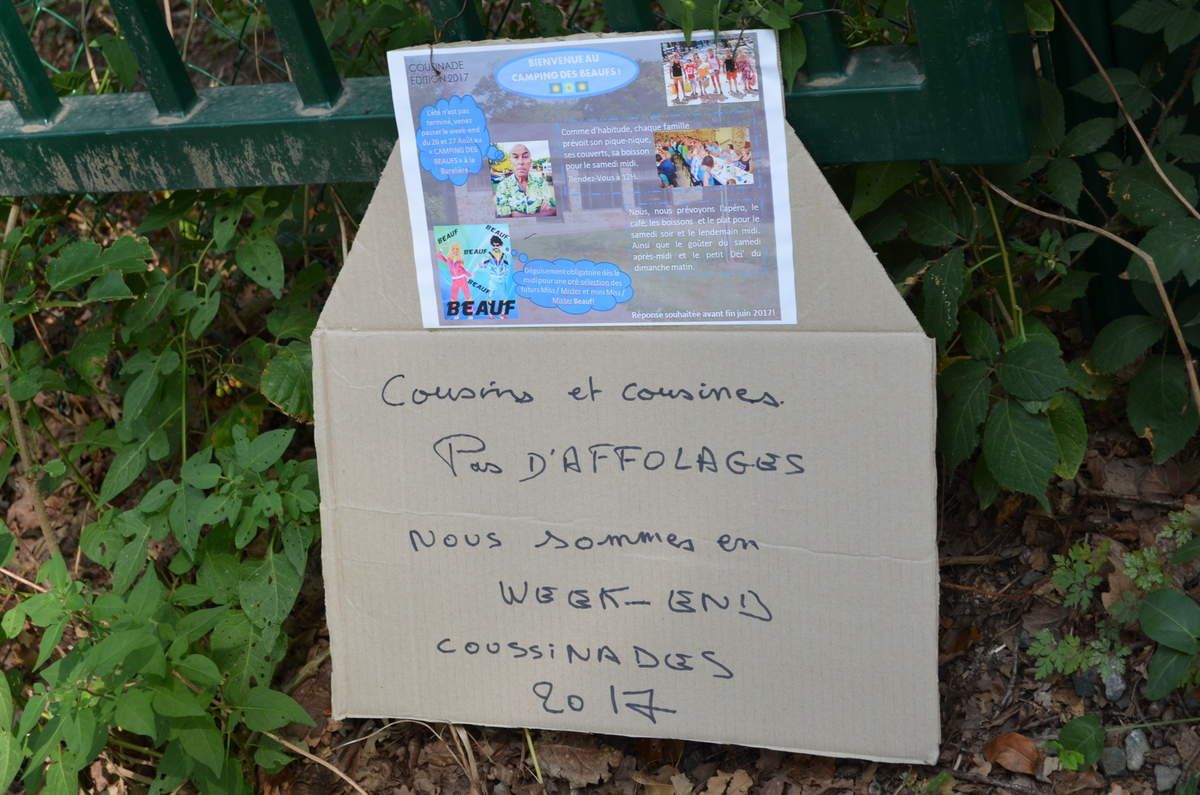 COUSINADE
EDITION 2017
BIENVENUE AU
CAMPING DES BEAUFS !
L'été n'est pas
terminé, venez
passer le week-end
du 26 et 27 Août au
« CAMPING DES
BEAUFS » à la
Comme d'habitude, chaque famille
prévoit son pique-nique,
ses couverts, sa boisson
pour le samedi midi.
Rendez-Vous à 12H.
Nous, nous prévoyons l'apéro, le
café, les boissons et le plat pour le
samedi soir et le lendemain midi.
Ainsi que le goûter du samedi
après-midi et le petit Dej' du
dimanche matin.
BEAUF
BEAUF
BEAUF
BEAUF
BEAUF
BEAUF
Déguisement obligatoire dès le
midi pour une pré-sélection des
futurs Miss / Mister et mini Miss /
Mister Beauf!
Réponse souhaitée avant fin juin 2017!
Cousins et cousines.
Pas D'AFFOLAGES
Nous sommes en
WEEK-END
COUSSINADES
2017